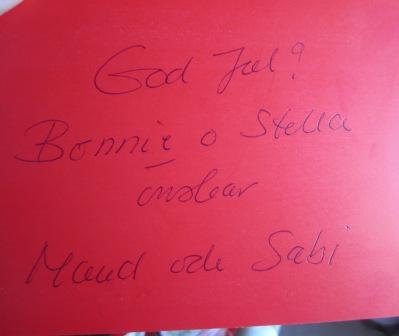 God Jul!
Bonnie o Stella
önskar
Maud och Sabi